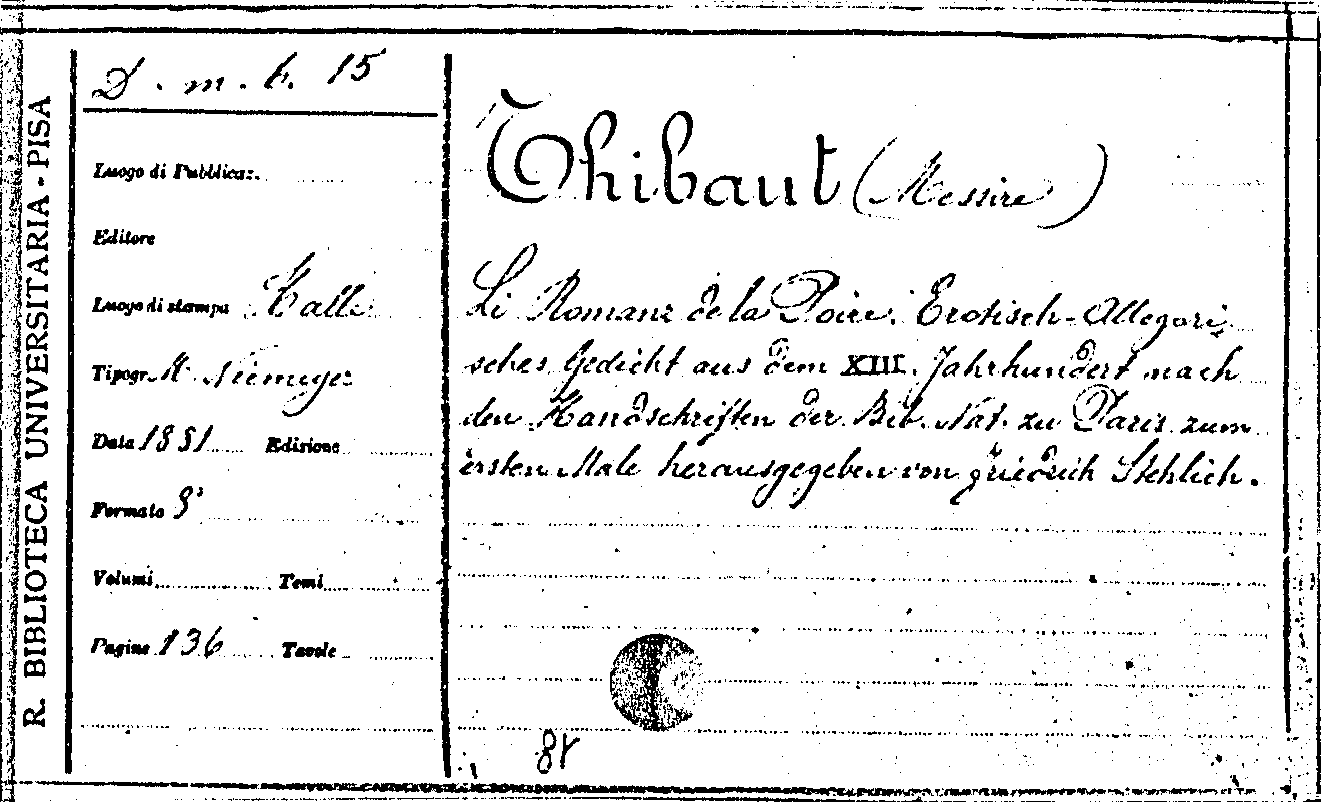 R. BIBLIOTECA UNIVERSITARIA - PISA
D. m. b. 15
Luogo di Pubblicaz.
Editore
Luogo di stampa Halle
Tipogr. M. Niemeyer
Data 1881 Edizione
Formato 8°
Volumi Tomi
Pagine 136 Tavole
Thibaut (Messire)
Li Romanz de la Poire. Erotisch-Allegori
sches Gedicht aus dem XIII. Jahrhundert nach
den Handschriften der Bib. Nat. zu Paris zum
ersten Male herausgegeben von Friedrich Stehlich.